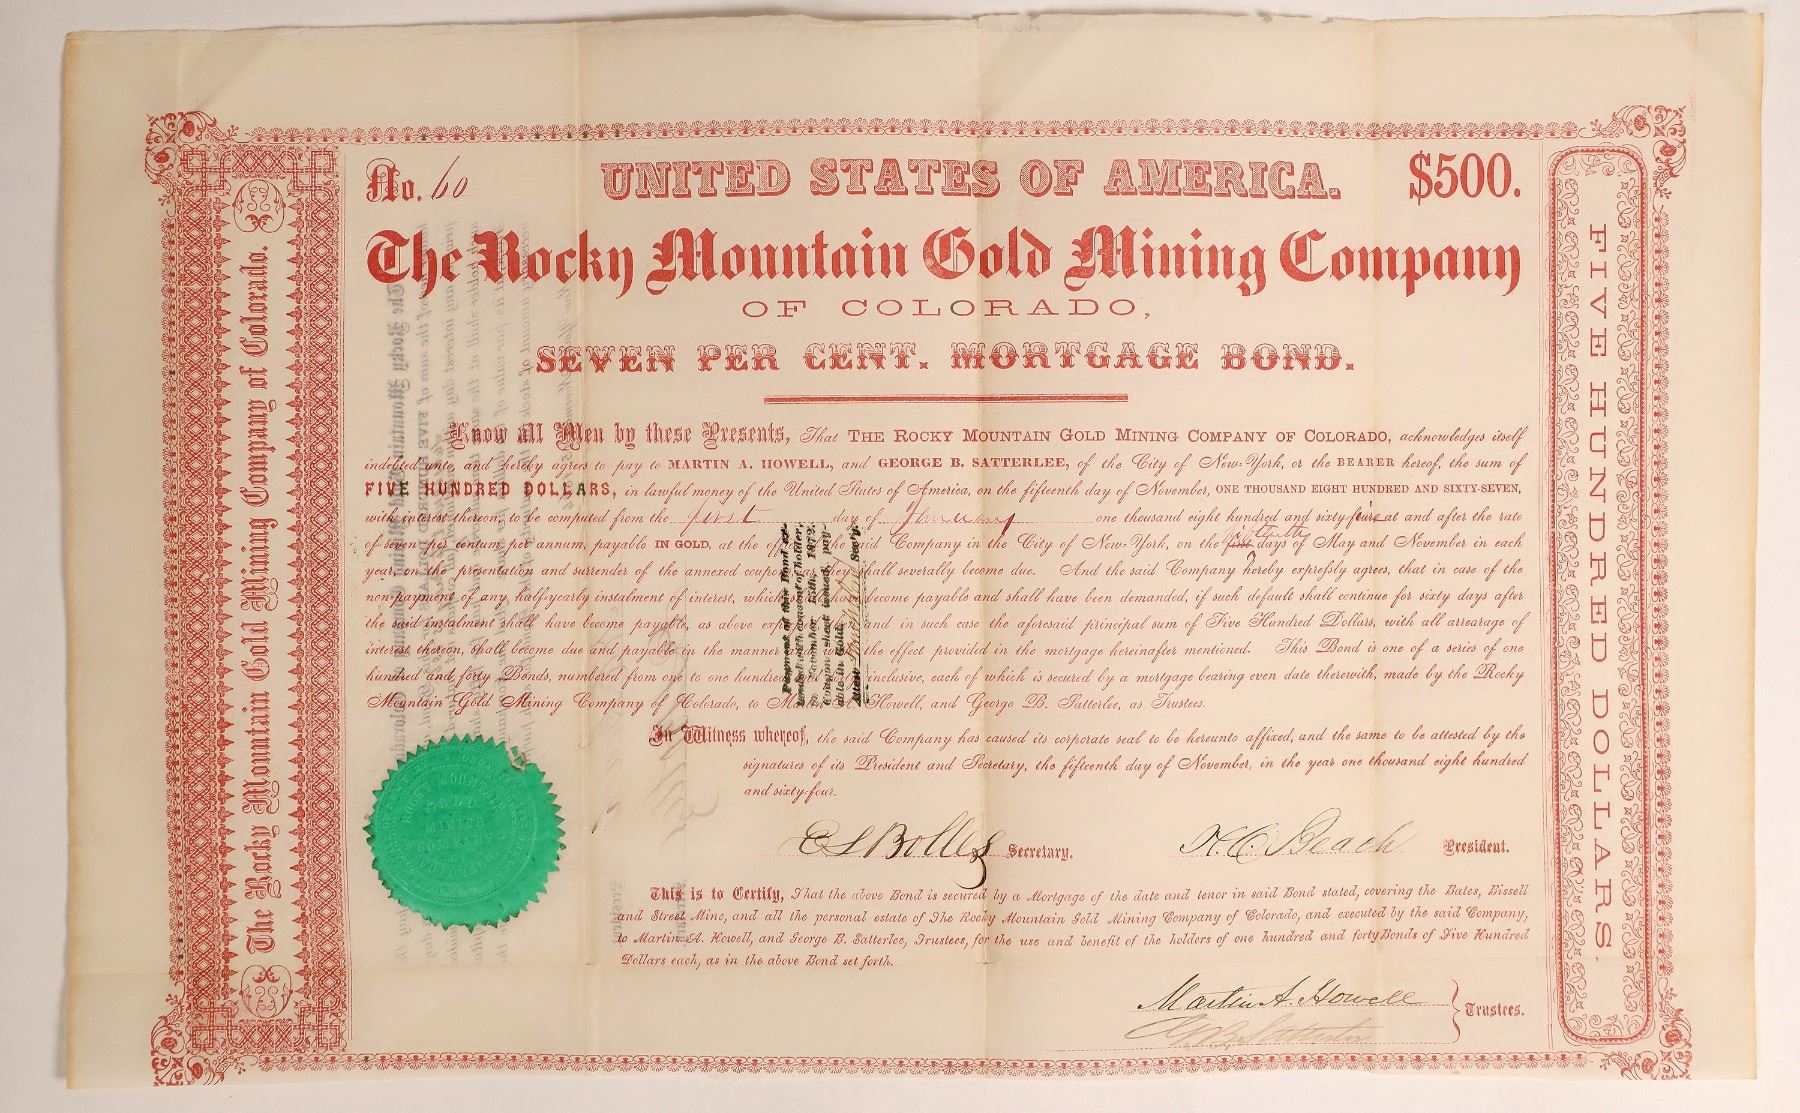 No. 60
UNITED STATES OF AMERICA.
$500.
The Rocky Mountain Gold Mining Company
OF COLORADO,
SEVEN PER CENT. MORTGAGE BOND.
Know all Men by these Presents, That THE ROCKY MOUNTAIN GOLD MINING COMPANY OF COLORADO, acknowledges itself
indebted unto, and hereby agrees to pay to MARTIN A. HOWELL, and GEORGE B. SATTERLEE, of the City of New-York, or the BEARER hereof, the sum of
FIVE HUNDRED DOLLARS, in lawful money of the United States of America, on the fifteenth day of November, ONE THOUSAND EIGHT HUNDRED AND SIXTY-SEVEN,
with interest thereon, to be computed from the first day of January one thousand eight hundred and sixty-five at and after the rate
of seven per centum per annum, payable IN GOLD, at the office the said Company in the City of New-York, on the days of May and November in each
year, on the presentation and surrender of the annexed coupons as they shall severally become due. And the said Company hereby expressly agrees, that in case of the
non-payment of any half-yearly instalment of interest, which shall become payable and shall have been demanded, if such default shall continue for sixty days after
the said instalment shall have become payable, as above and in such case the aforesaid principal sum of Five Hundred Dollars, with all arrearage of
interest thereon, shall become due and payable in the manner the effect provided in the mortgage hereinafter mentioned. This Bond is one of a series of one
hundred and forty Bonds, numbered from one to one hundred inclusive, each of which is secured by a mortgage bearing even date therewith, made by the Rocky
Mountain Gold Mining Company of Colorado, to Martin A. Howell, and George B. Satterlee, as Trustees.
Payment of this Bond ex-
tended with consent of holder,
to November 15th, 1872,
coupon sheet issued, pay-
able in Gold.
Attest Secy.
In Witness whereof, the said Company has caused its corporate seal to be hereunto affixed, and the same to be attested by the
signatures of its President and Secretary, the fifteenth day of November, in the year one thousand eight hundred
and sixty-four.
E S Bolles Secretary.
H. C. Beach President.
This is to Certify, That the above Bond is secured by a Mortgage of the date and tenor in said Bond stated, covering the Bates, Bissell
and Street Mine, and all the personal estate of The Rocky Mountain Gold Mining Company of Colorado, and executed by the said Company,
to Martin A. Howell, and George B. Satterlee, Trustees, for the use and benefit of the holders of one hundred and forty Bonds of Five Hundred
Dollars each, as in the above Bond set forth.
Martin A. Howell
G. B. Satterlee
Trustees.
The Rocky Mountain Gold Mining Company of Colorado.
FIVE HUNDRED DOLLARS.
ROCKY MOUNTAIN
GOLD
MINING
COMPANY